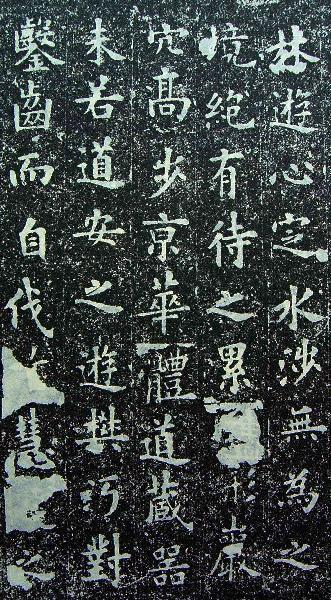 林遊心定水涉無為之
境絕有待之累形巖
穴髙步京華體道藏器
未若道安之遊樊沔對
鑿齒而自伐慧之